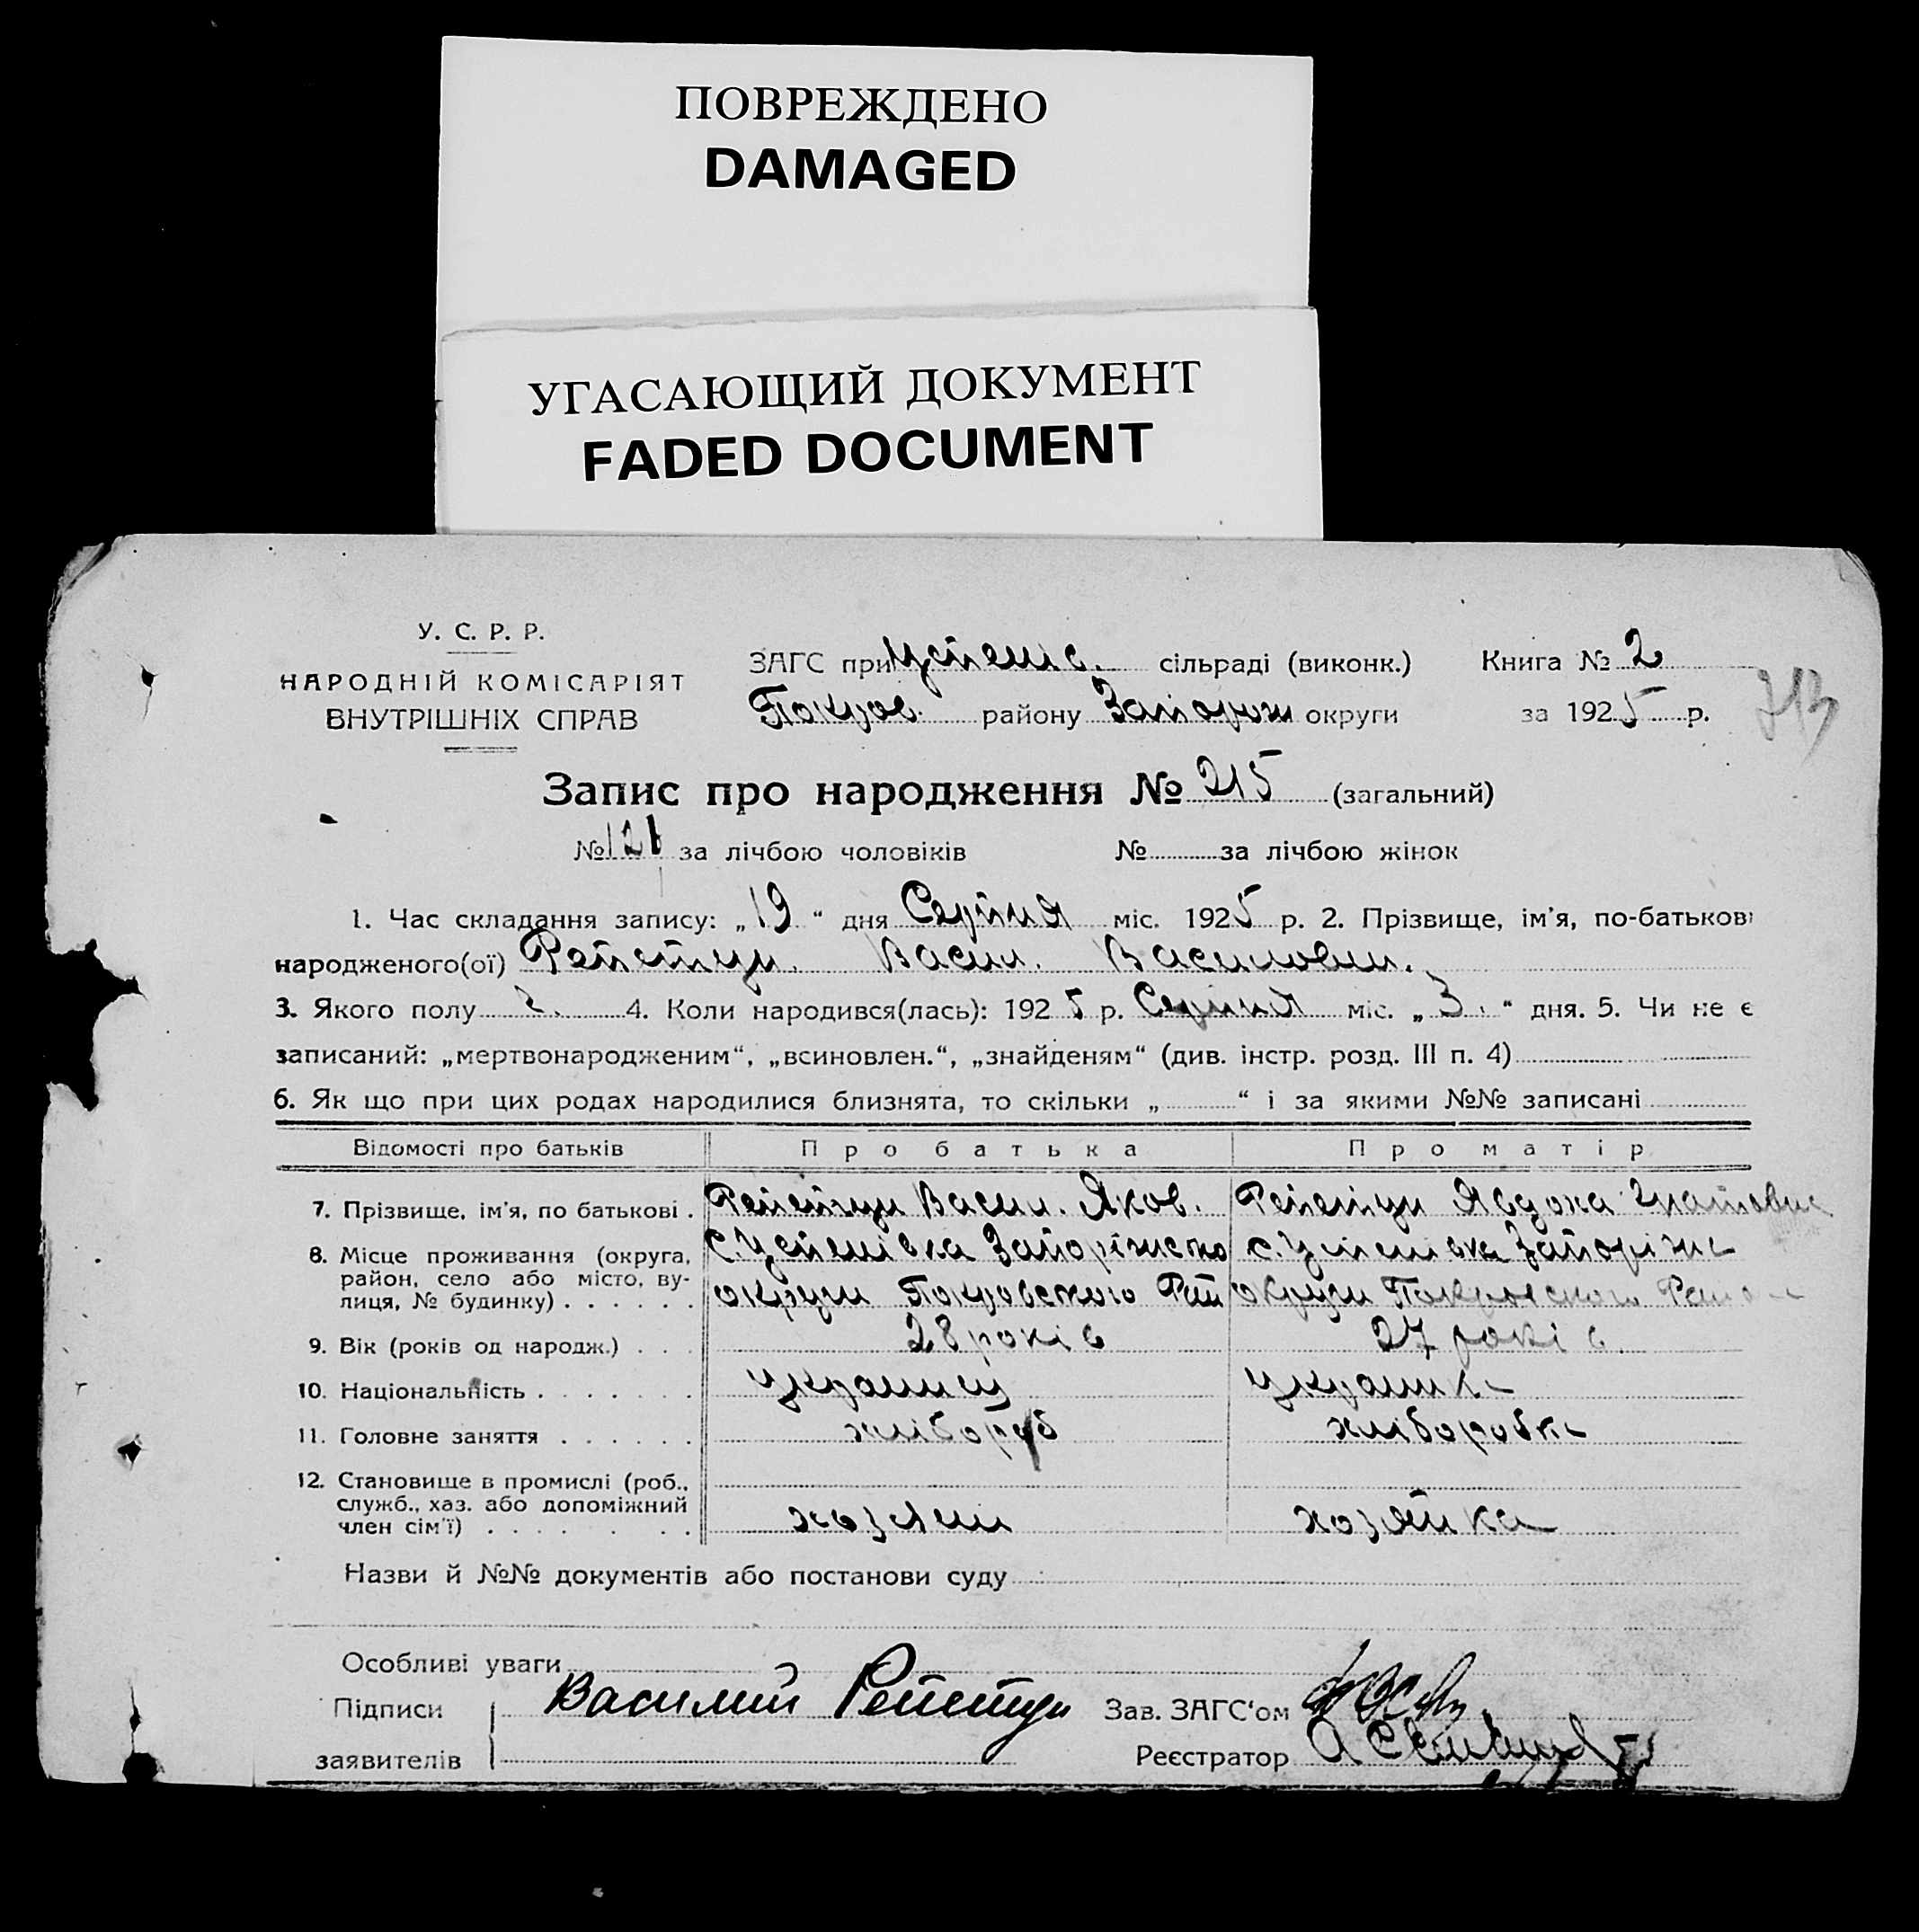 ПОВРЕЖДЕНО
DAMAGED
УГАСАЮЩИЙ ДОКУМЕНТ
FADED DOCUMENT
У. С. Р. Р.
НАРОДНІЙ КОМІСАРІЯТ
ВНУТРІШНІХ СПРАВ
ЗАГС при Успенів. сільраді (виконк.) Книга № 2
Покров. району Запориж округи за 1925 р.
Запис про народження № 215 (загальний)
№ 121 за лічбою чоловіків № за лічбою жінок
1. Час складання запису: „19“ дня Серпня міс. 1925 р. 2. Прізвище, ім'я, по-батькові
народженого(ої) Репетун. Васил. Василович.
3. Якого полу ч. 4. Коли народився(лась): 1925 р. Серпня міс. „3.“ дня. 5. Чи не є
записаний: „мертвонародженим“, „всиновлен.“, „знайденям“ (див. інстр. розд. III п. 4)
6. Як що при цих родах народилися близнята, то скільки „ “ і за якими №№ записані
Відомості про батьків Про батька Про матір
7. Прізвище, ім'я, по батькові . Репетун Васил. Яков. Репетун Явдоха Гнатовна
8. Місце проживання (округа, район, село або місто, вулиця, № будинку) . . . . . . с. Успенівка Запоріжсько с. Успенівка Запоріжс
округи Покровського Рай округи Покровского Район
9. Вік (років од народж.) . . . 28 років 27 років
10. Національність . . . . . . . українец українка
11. Головне заняття . . . . . . хлібороб хліборобка
12. Становище в промислі (роб., служб., хаз. або допоміжний член сім'ї) . . . . . . . хозяин хозяйка
Назви й №№ документів або постанови суду
Особливі уваги
Підписи Василий Репетун Зав. ЗАГС'ом
заявителів Реєстратор